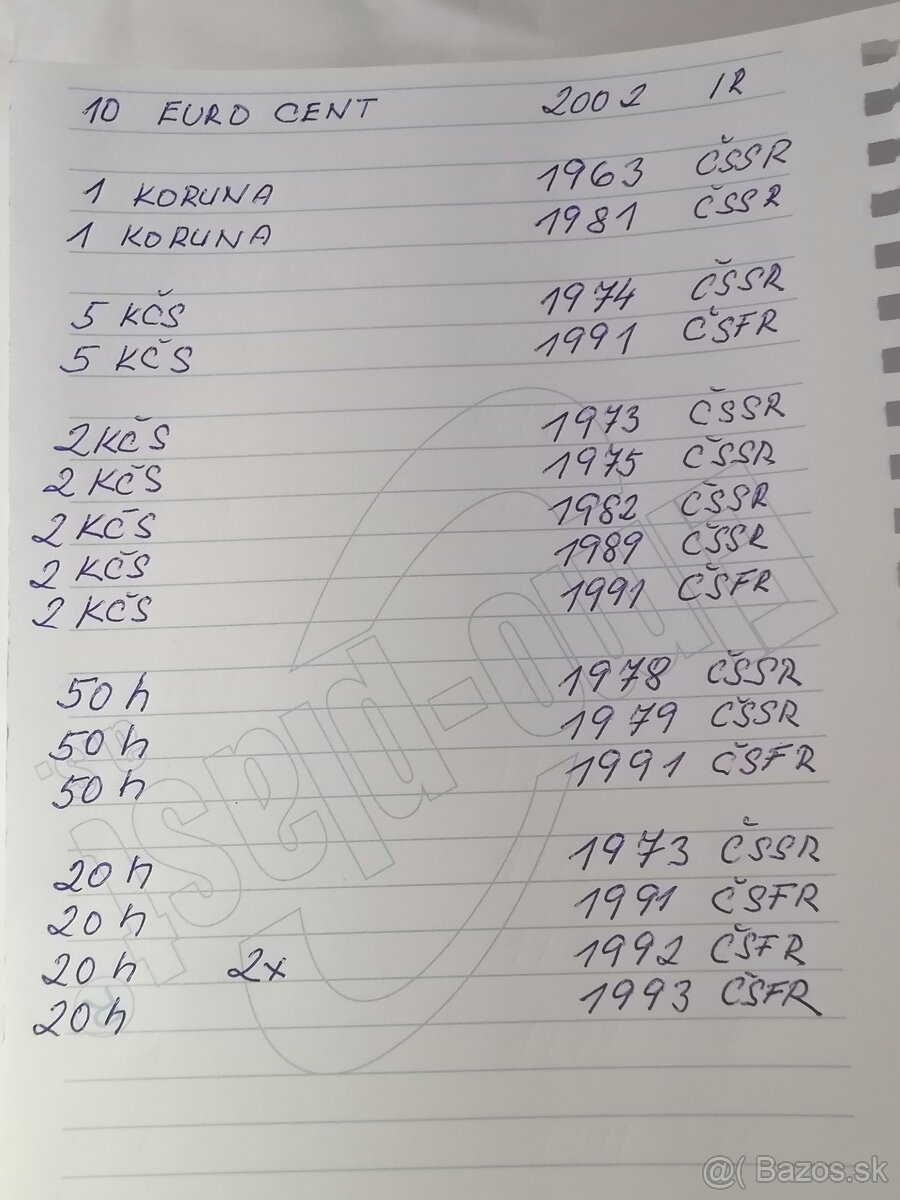 10 EURO CENT 2002 IR
1 KORUNA 1963 ČSSR
1 KORUNA 1981 ČSSR
5 KČS 1974 ČSSR
5 KČS 1991 ČSFR
2 KČS 1973 ČSSR
2 KČS 1975 ČSSR
2 KČS 1982 ČSSR
2 KČS 1989 ČSSR
2 KČS 1991 ČSFR
50 h 1978 ČSSR
50 h 1979 ČSSR
50 h 1991 ČSFR
20 h 1973 ČSSR
20 h 1991 ČSFR
20 h 2x 1992 ČSFR
20 h 1993 ČSFR
@( Bazos.sk